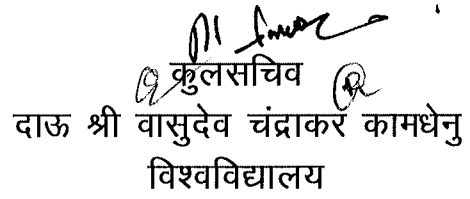 कुलसचिव
दाऊ श्री वासुदेव चंद्राकर कामधेनु
विश्वविद्यालय